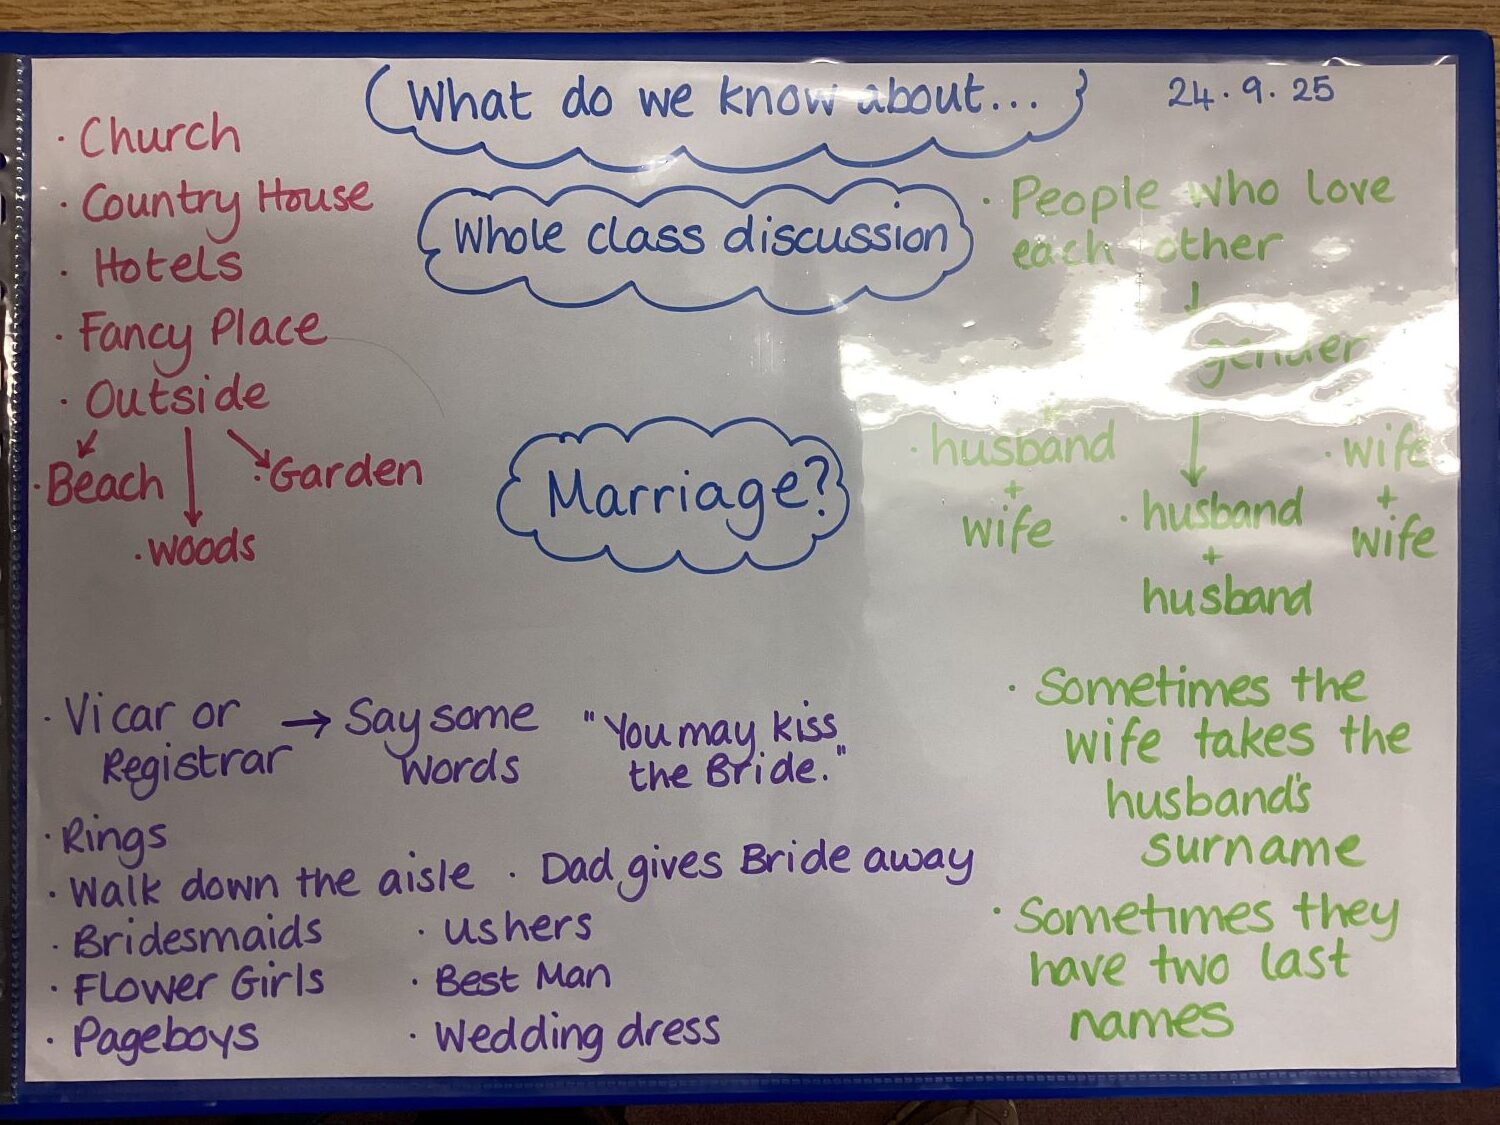 What do we know about...
24.9.25
Whole class discussion
Marriage?
· Church
· Country House
· Hotels
· Fancy Place
· Outside
· Beach
· Garden
· Woods
· People who love
each other
gender
· husband
+
wife
· husband
+
husband
· wife
+
wife
· Sometimes the
wife takes the
husband's
surname
· Sometimes they
have two last
names
· Vicar or
Registrar
→ Say some
words
"You may kiss
the Bride."
· Rings
· Walk down the aisle
· Dad gives Bride away
· Bridesmaids
· Flower Girls
· Pageboys
· ushers
· Best Man
· Wedding dress